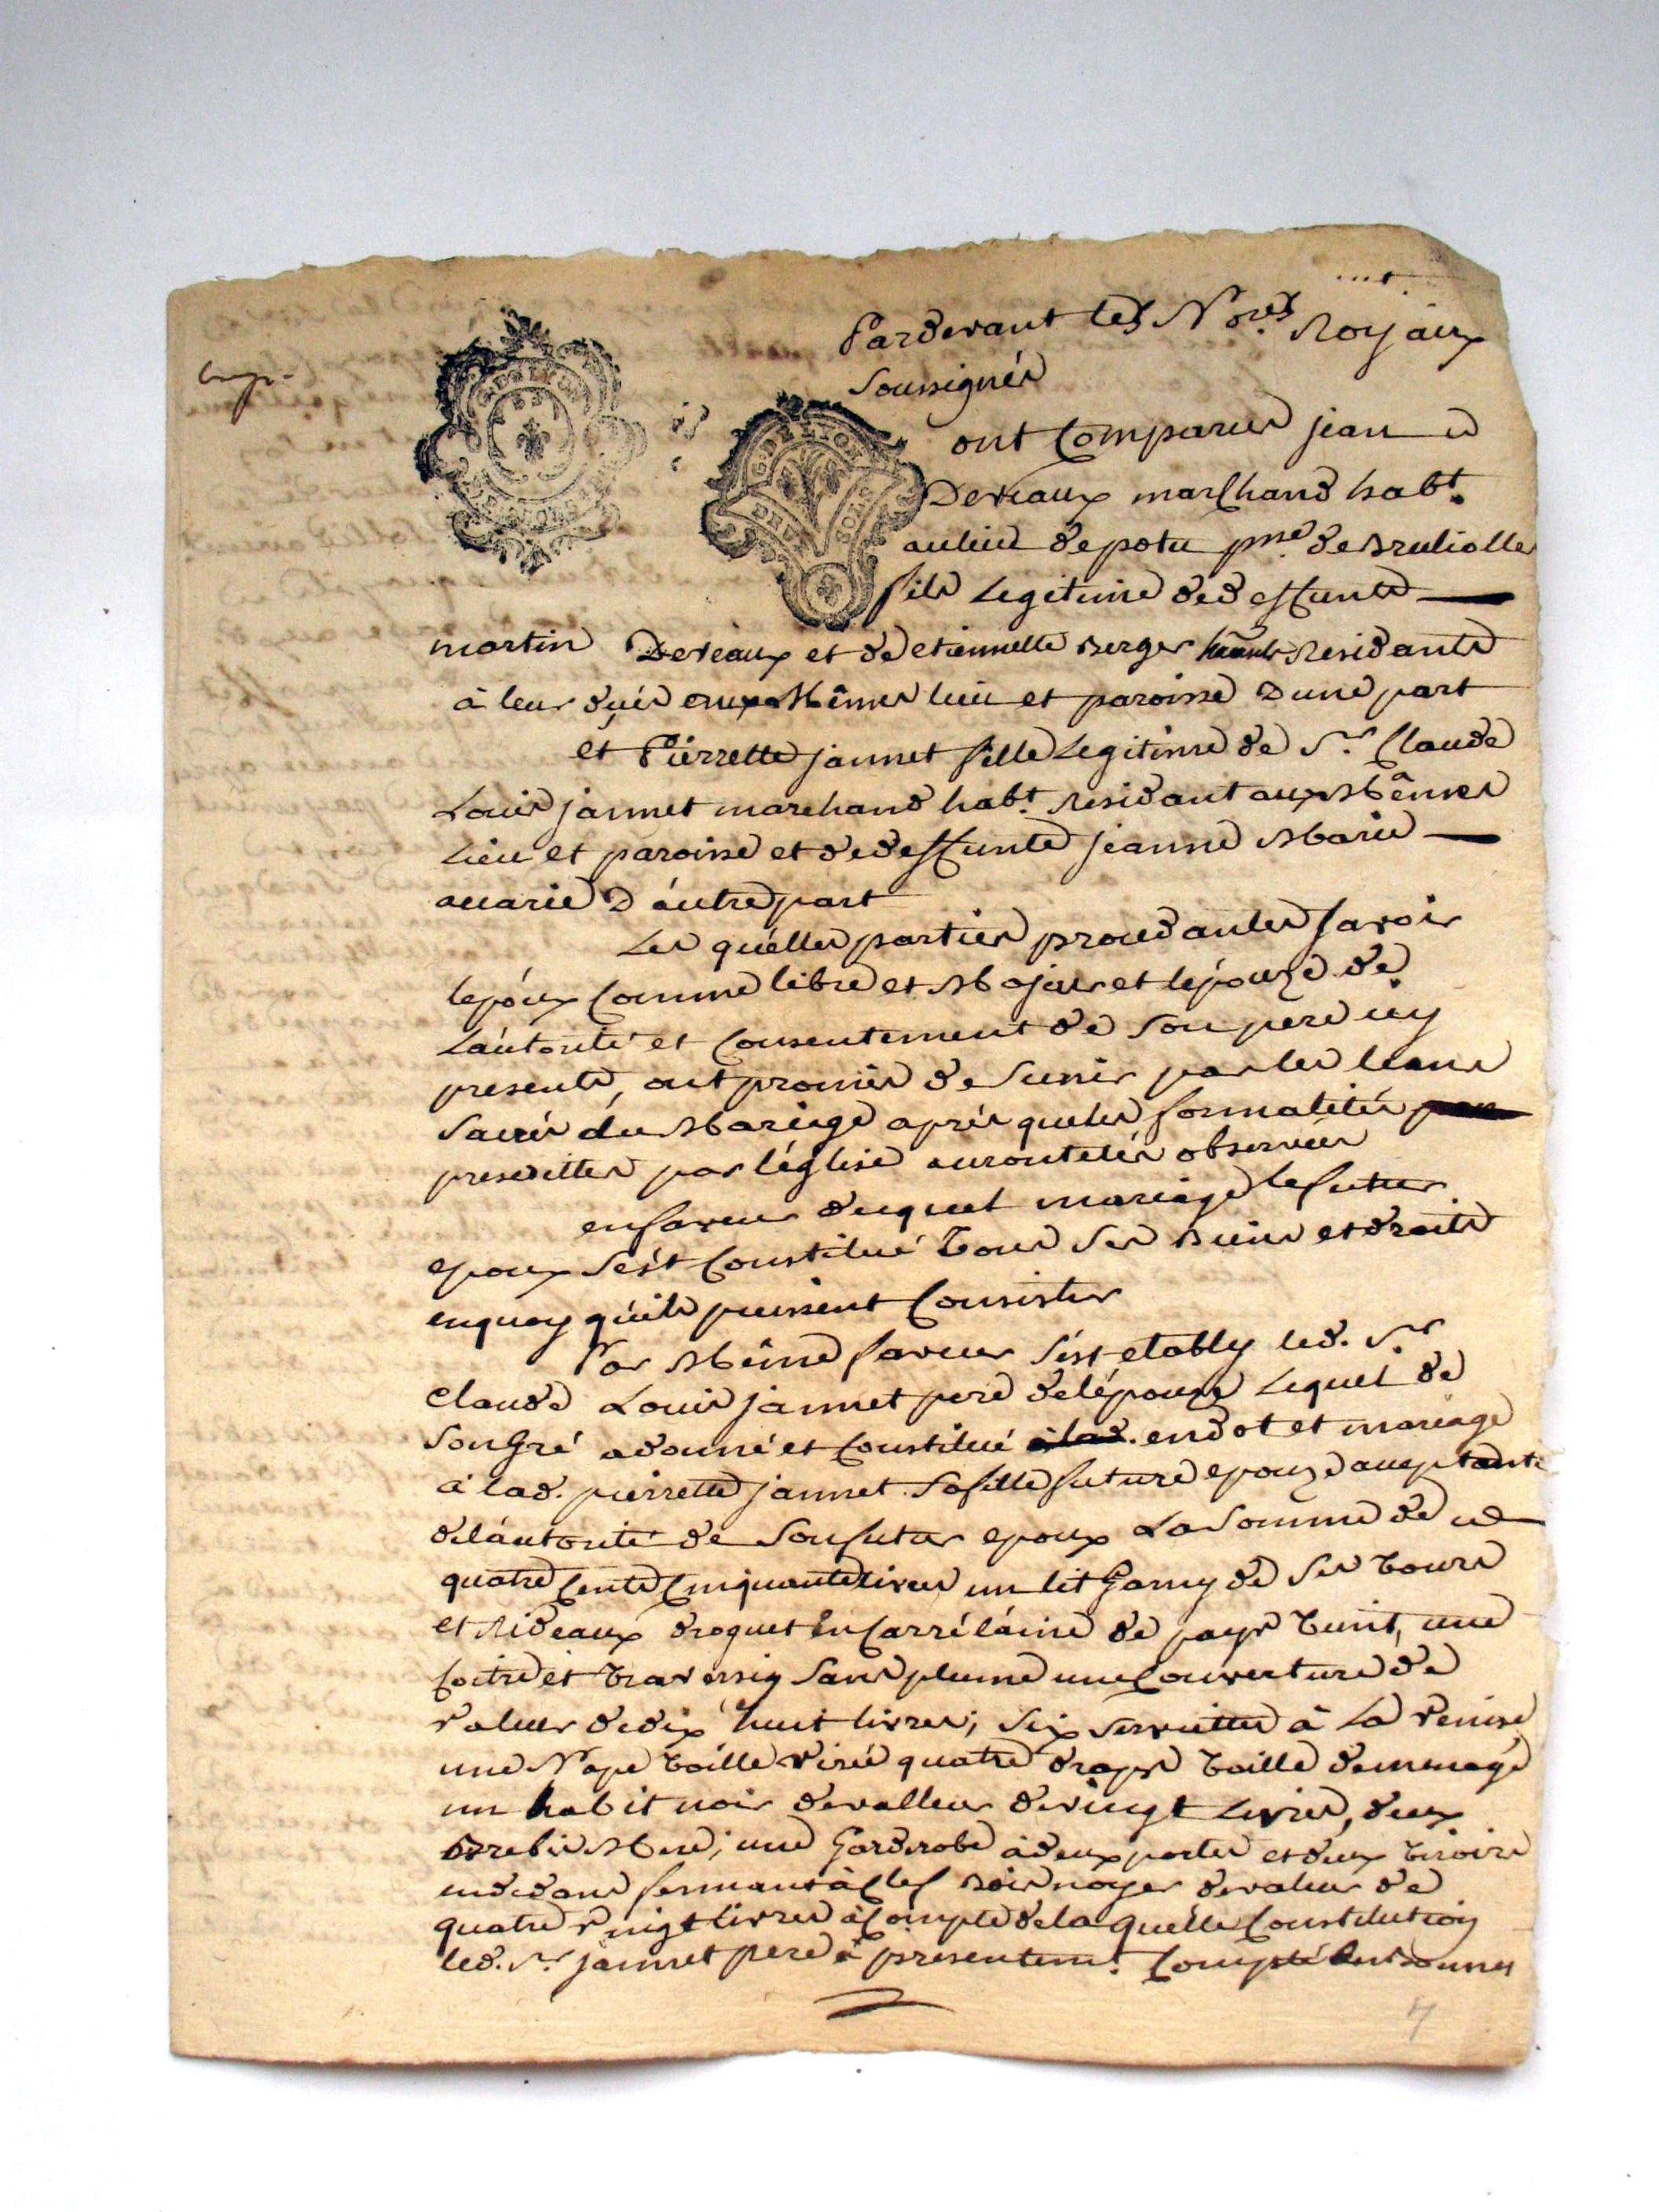 Pardevant les Nores Royaux
Soussignés
G. DE LYON
G. DE LYON
DEUX SOLS
ont Comparus jean
Deveaux marchand habt.
au lieu de potu psse de Bruliolles
fils Legitime de deffunts
martin Deveaux et de etiennette Berger residants
à leur duës lieu et paroisse D une part
et Pierrette jannet fille Legitime de Sr. Claude
Louis jannet marchand habt. residant aux Mêmes
Lieu et paroisse et de deffunte jeanne Marie
D'autre part
Les quelles parties procedantes Savoir
lepoux Comme libre et Majeur et lepouze de
L'autorité et Consentement de Son pere icy
present, ont promis de Sunir par les liens
Sacrés du Mariage aprés que les formalités
prescrittes par l'église auront etés observées
en faveur duquel mariage le futur
epoux S'est Constitué tous Ses Biens et droits
en quoy qu'ils puissent Consister
Par Même faveur S'est etably led. Sr.
Claude Louis jannet pere de lépouze Lequel de
Son Gré a donné et Constitué en dot et mariage
à lad. pierrette jannet Sa fille future epouze acceptante
de l'autorité de Son futur epoux La Somme de
quatre Cents Cinquante livres un lit Garny de Ses tours
et Rideaux droguet en Carré láine de pays teint, une
Coitre et traversin Sans plume une Couverture de
valeur de dix huit livres, Six Serviettes à La Venise
une Nape toille quatre draps toille de menage
un habit noir de valleur de vingt Livres, deux
Brebis Mere, une Garderobe à deux portes et deux tiroirs
en dedans fermant à Clef Bois noyer de valeur de
quatre vingt livres à Compte de la quelle Constitution
led. Sr. jannet pere à presentemt. Compté
7